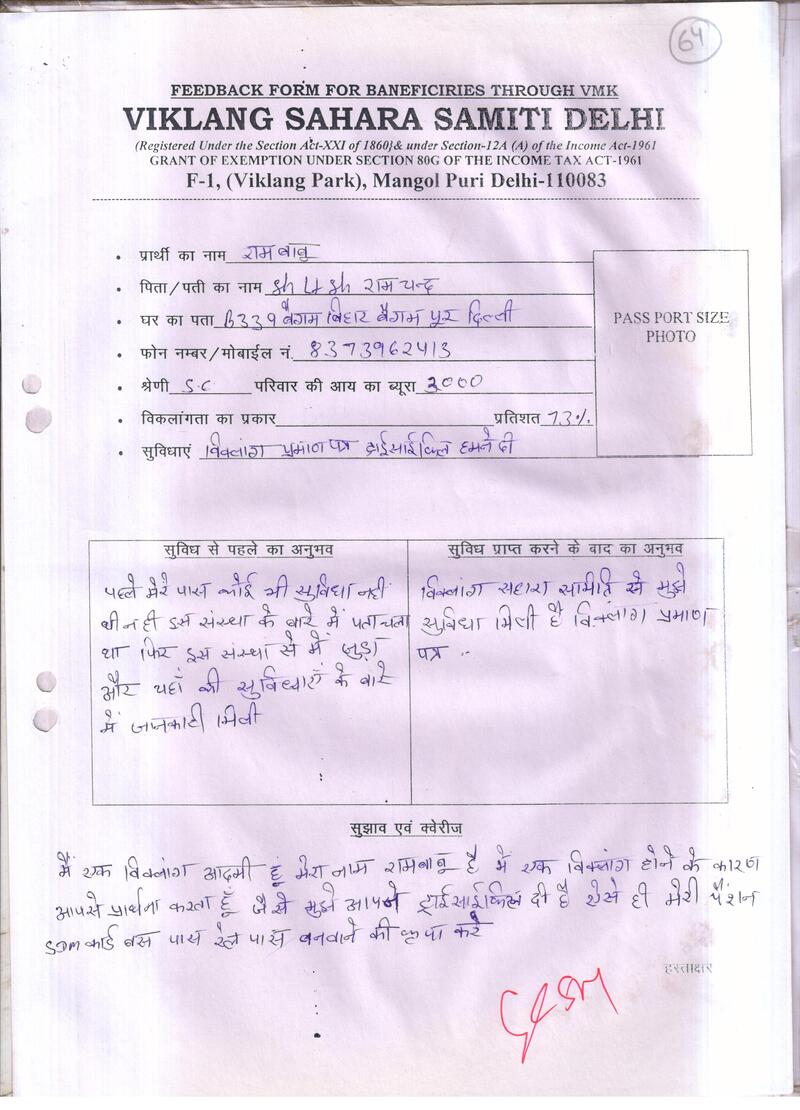 64
FEEDBACK FORM FOR BANEFICIRIES THROUGH VMK
VIKLANG SAHARA SAMITI DELHI
(Registered Under the Section Act-XXI of 1860)& under Section-12A (A) of the Income Act-1961
GRANT OF EXEMPTION UNDER SECTION 80G OF THE INCOME TAX ACT-1961
F-1, (Viklang Park), Mangol Puri Delhi-110083
• प्रार्थी का नाम रामबाबु
• पिता/पती का नाम राम चन्द्र
• घर का पता B339 बैगम विहार बैगम पूर दिल्ली
PASS PORT SIZE
PHOTO
• फोन नम्बर/मोबाईल नं. 8373962413
• श्रेणी S.C परिवार की आय का ब्यूरा 3000
• विकलांगता का प्रकार प्रतिशत 73%
• सुविधाएं विक्लांग प्रमाण पत्र ट्राईसाईकिल हमने दी
सुविध से पहले का अनुभव
पहले मेरे पास कोई भी सुविधा नहीं
थी न ही इस संस्था के बारे में पता चला
था फिर इस संस्था से मैं जुड़ा
और यहाँ की सुविधाएँ के बारे
में जानकारी मिली
सुविध प्राप्त करने के बाद का अनुभव
विक्लांग सहारा समिति से मुझे
सुविधा मिली है विक्लांग प्रमाण
पत्र
सुझाव एवं क्वेरीज
मैं एक विक्लांग आदमी हूं मेरा नाम रामबाबू है मैं एक विक्लांग होने के कारण
आपसे प्रार्थना करता हूँ जैसे मुझे आपने ट्राईसाईकिल दी है ऐसे ही मेरी पैंशन
SDM कार्ड बस पास रेल पास बनवाने की कृपा करे
हस्ताक्षर